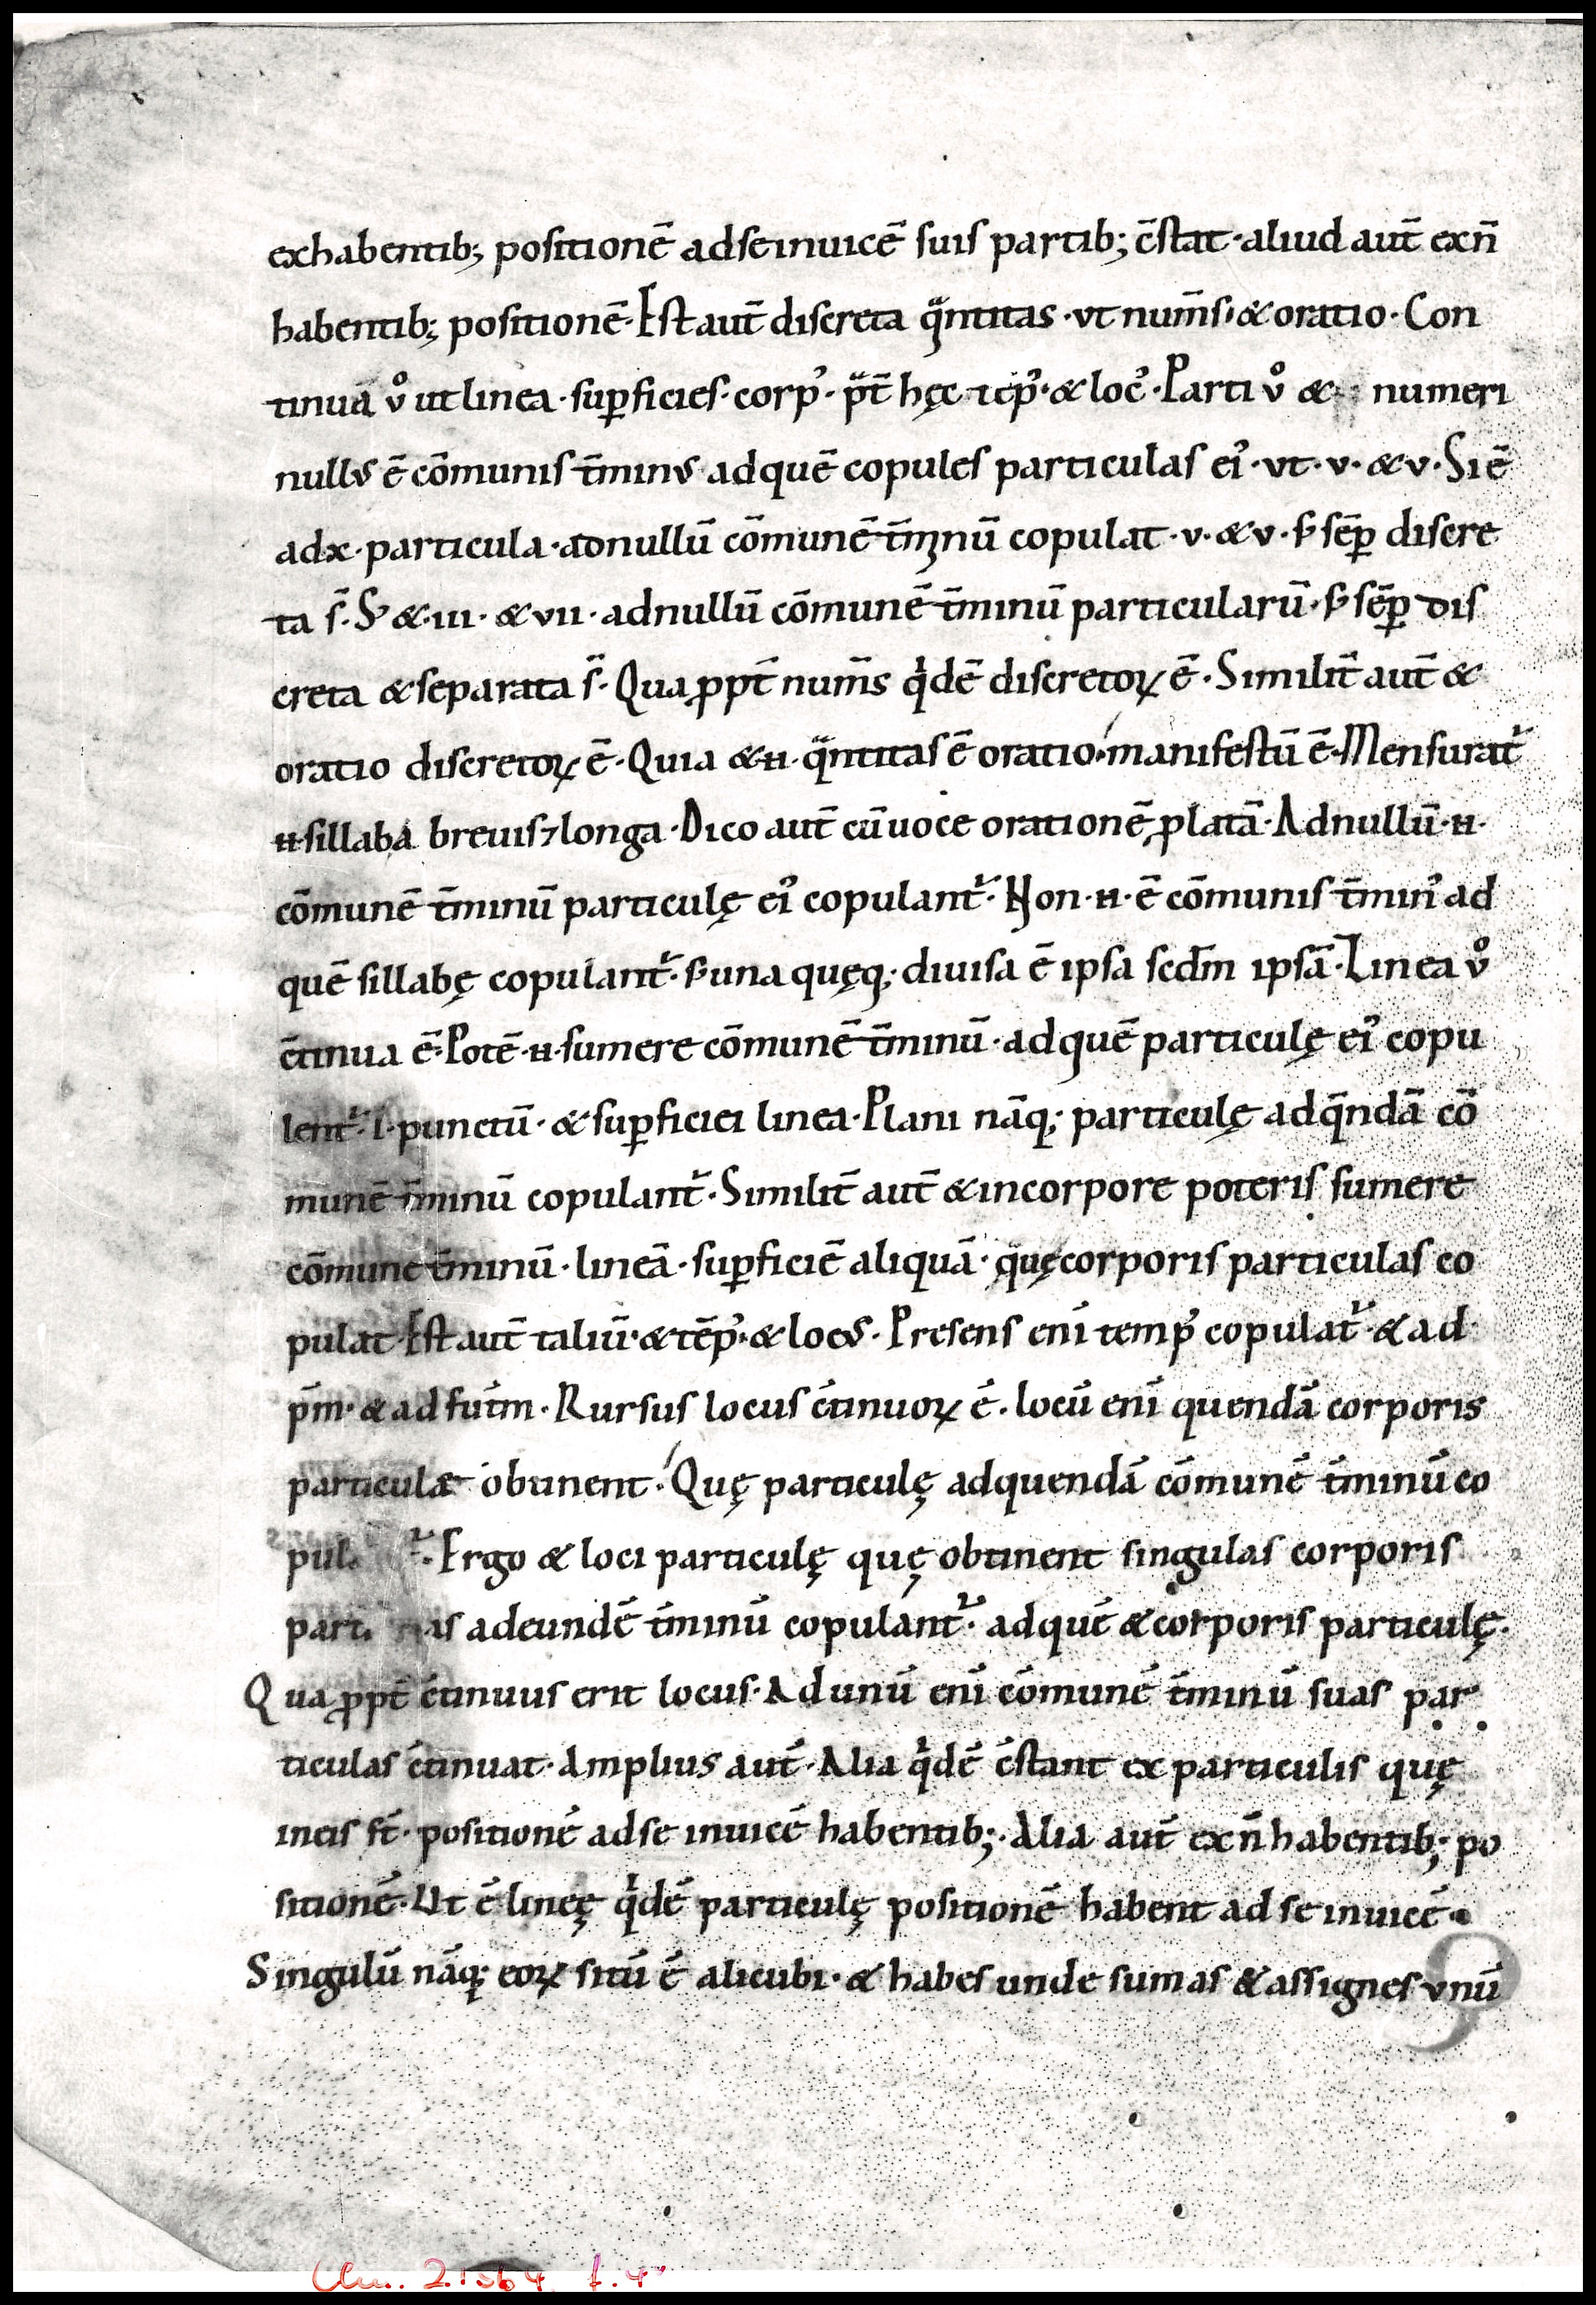 exhabentib; positionē adseinuicē suis partib; c̄stat·aliud aut̄ exn̄
habentib; positionē·Est aut̄ discreta qͣntitas·vt num̄s·&oratio·Con
tinua v̊ ut linea·suꝑficies·corpꝰ·p̄t̄ hęc tēpꝰ·&locꝰ·Parti v̊ & numeri
nullus ē cōmunis t̄minus adquē copules particulas eiꝰ·vt·v·&v·Si ē
adx·particula·adnullū cōmunē t̄minū copulat·v·&v·s; sēꝑ discre
ta s̄·S; &·iii·&vii·adnullū cōmunē t̄minū particularū·s; sēꝑ dis
creta &separata s̄·Quaꝓpt̄ num̄s qͥdē discretoꝝ ē·Similit̄ aut̄ &
oratio discretoꝝ ē·Quia &·n·qͣntitas ē oratio·manifestū ē·Mensurat᷑
·n·sillaba breuis ⁊longa·Dico aut̄ cū uoce orationē ꝓlatā·Adnullū·n·
cōmunē t̄minū particulę eiꝰ copulant᷑·Non·n·ē cōmunis t̄minꝰ ad
quē sillabę copulant᷑·s; una quęq;·diuisa ē ipsa scd̄m ipsā·Linea v̊
c̄tinua ē·Potē·n·sumere cōmunē t̄minū·adquē particulę eiꝰ copu
lent᷑·i·punctū·&suꝑficiei linea·Plani nāq; particulę adqͣndā cō
munē t̄minū copulant᷑·Similit̄ aut̄ &incorpore poteris sumere
cōmunē t̄minū·lineā·suꝑficiē aliquā·quęcorporis particulas co
pulat·Est aut̄ taliū·&tēpꝰ·&locus·Presens eni̅ tempꝰ copulat᷑·&ad
p̄m·&ad fut̄m·Rursus locus c̄tinuoꝝ ē·locū eni̅ quendā corporis
particulæ obtinent·Quę particulę adquendā cōmunē t̄minū co
pul ᷑·Ergo & loci particulę quę obtinent singulas corporis
part as adeundē t̄minū copulant᷑·adquē &corporis particulę·
Quaꝓpt̄ c̄tinuus erit locus·Adunū eni̅ cōmunē t̄minū suas par
ticulas c̄tinuat·Amplius aut̄·Alia qͥdē c̄stant ex particulis quę
ineis st̄·positionē adse inuicē habentib;·Alia aut̄ exn̄habentib; po
sitionē·Ut ē lineę qͥdē particulę positionē habent ad se inuicē·
Singulū nāq; eoꝝ sitū ē alicubi·&habes unde sumas &assignes vnū
9
Clm. 21564 f. 4v